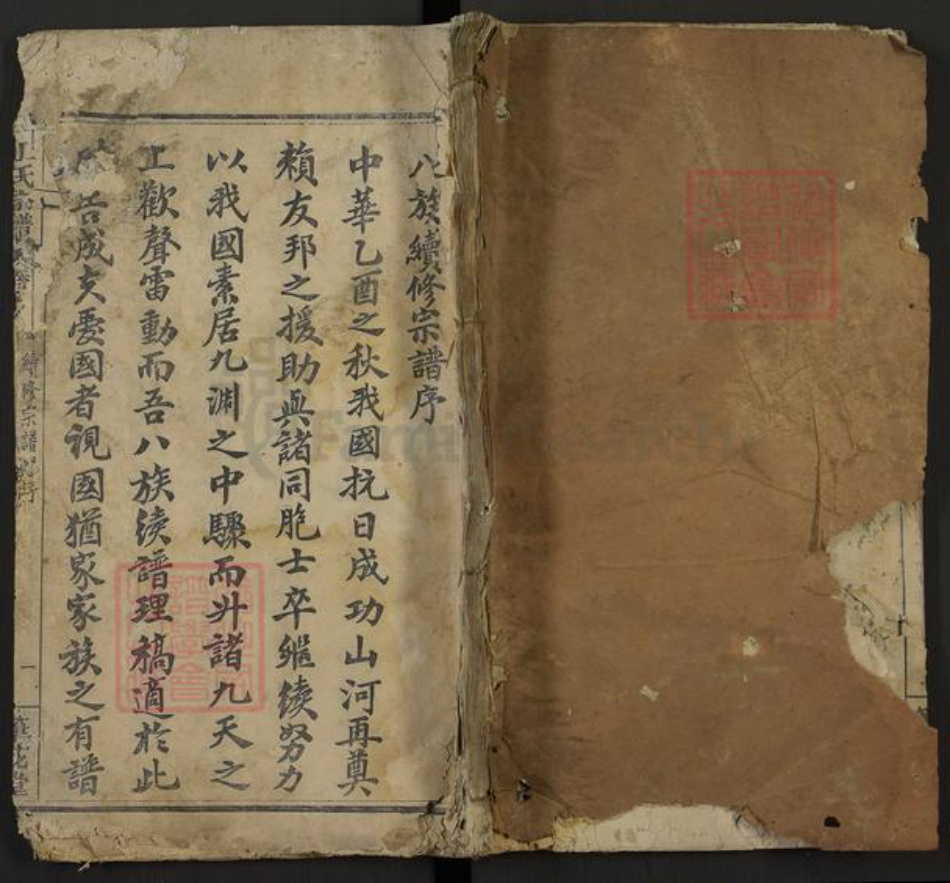 八族續修宗譜序
中華乙酉之秋我國抗日成功山河再奠
賴友邦之援助與諸同胞士卒繼续努力
以我國素居九渊之中驟而升諸九天之
上歡聲雷動而吾八族续譜理稿適於此
告成夫愛國者視國猶家家族之有譜
氏宗譜
續修宗譜
序
一